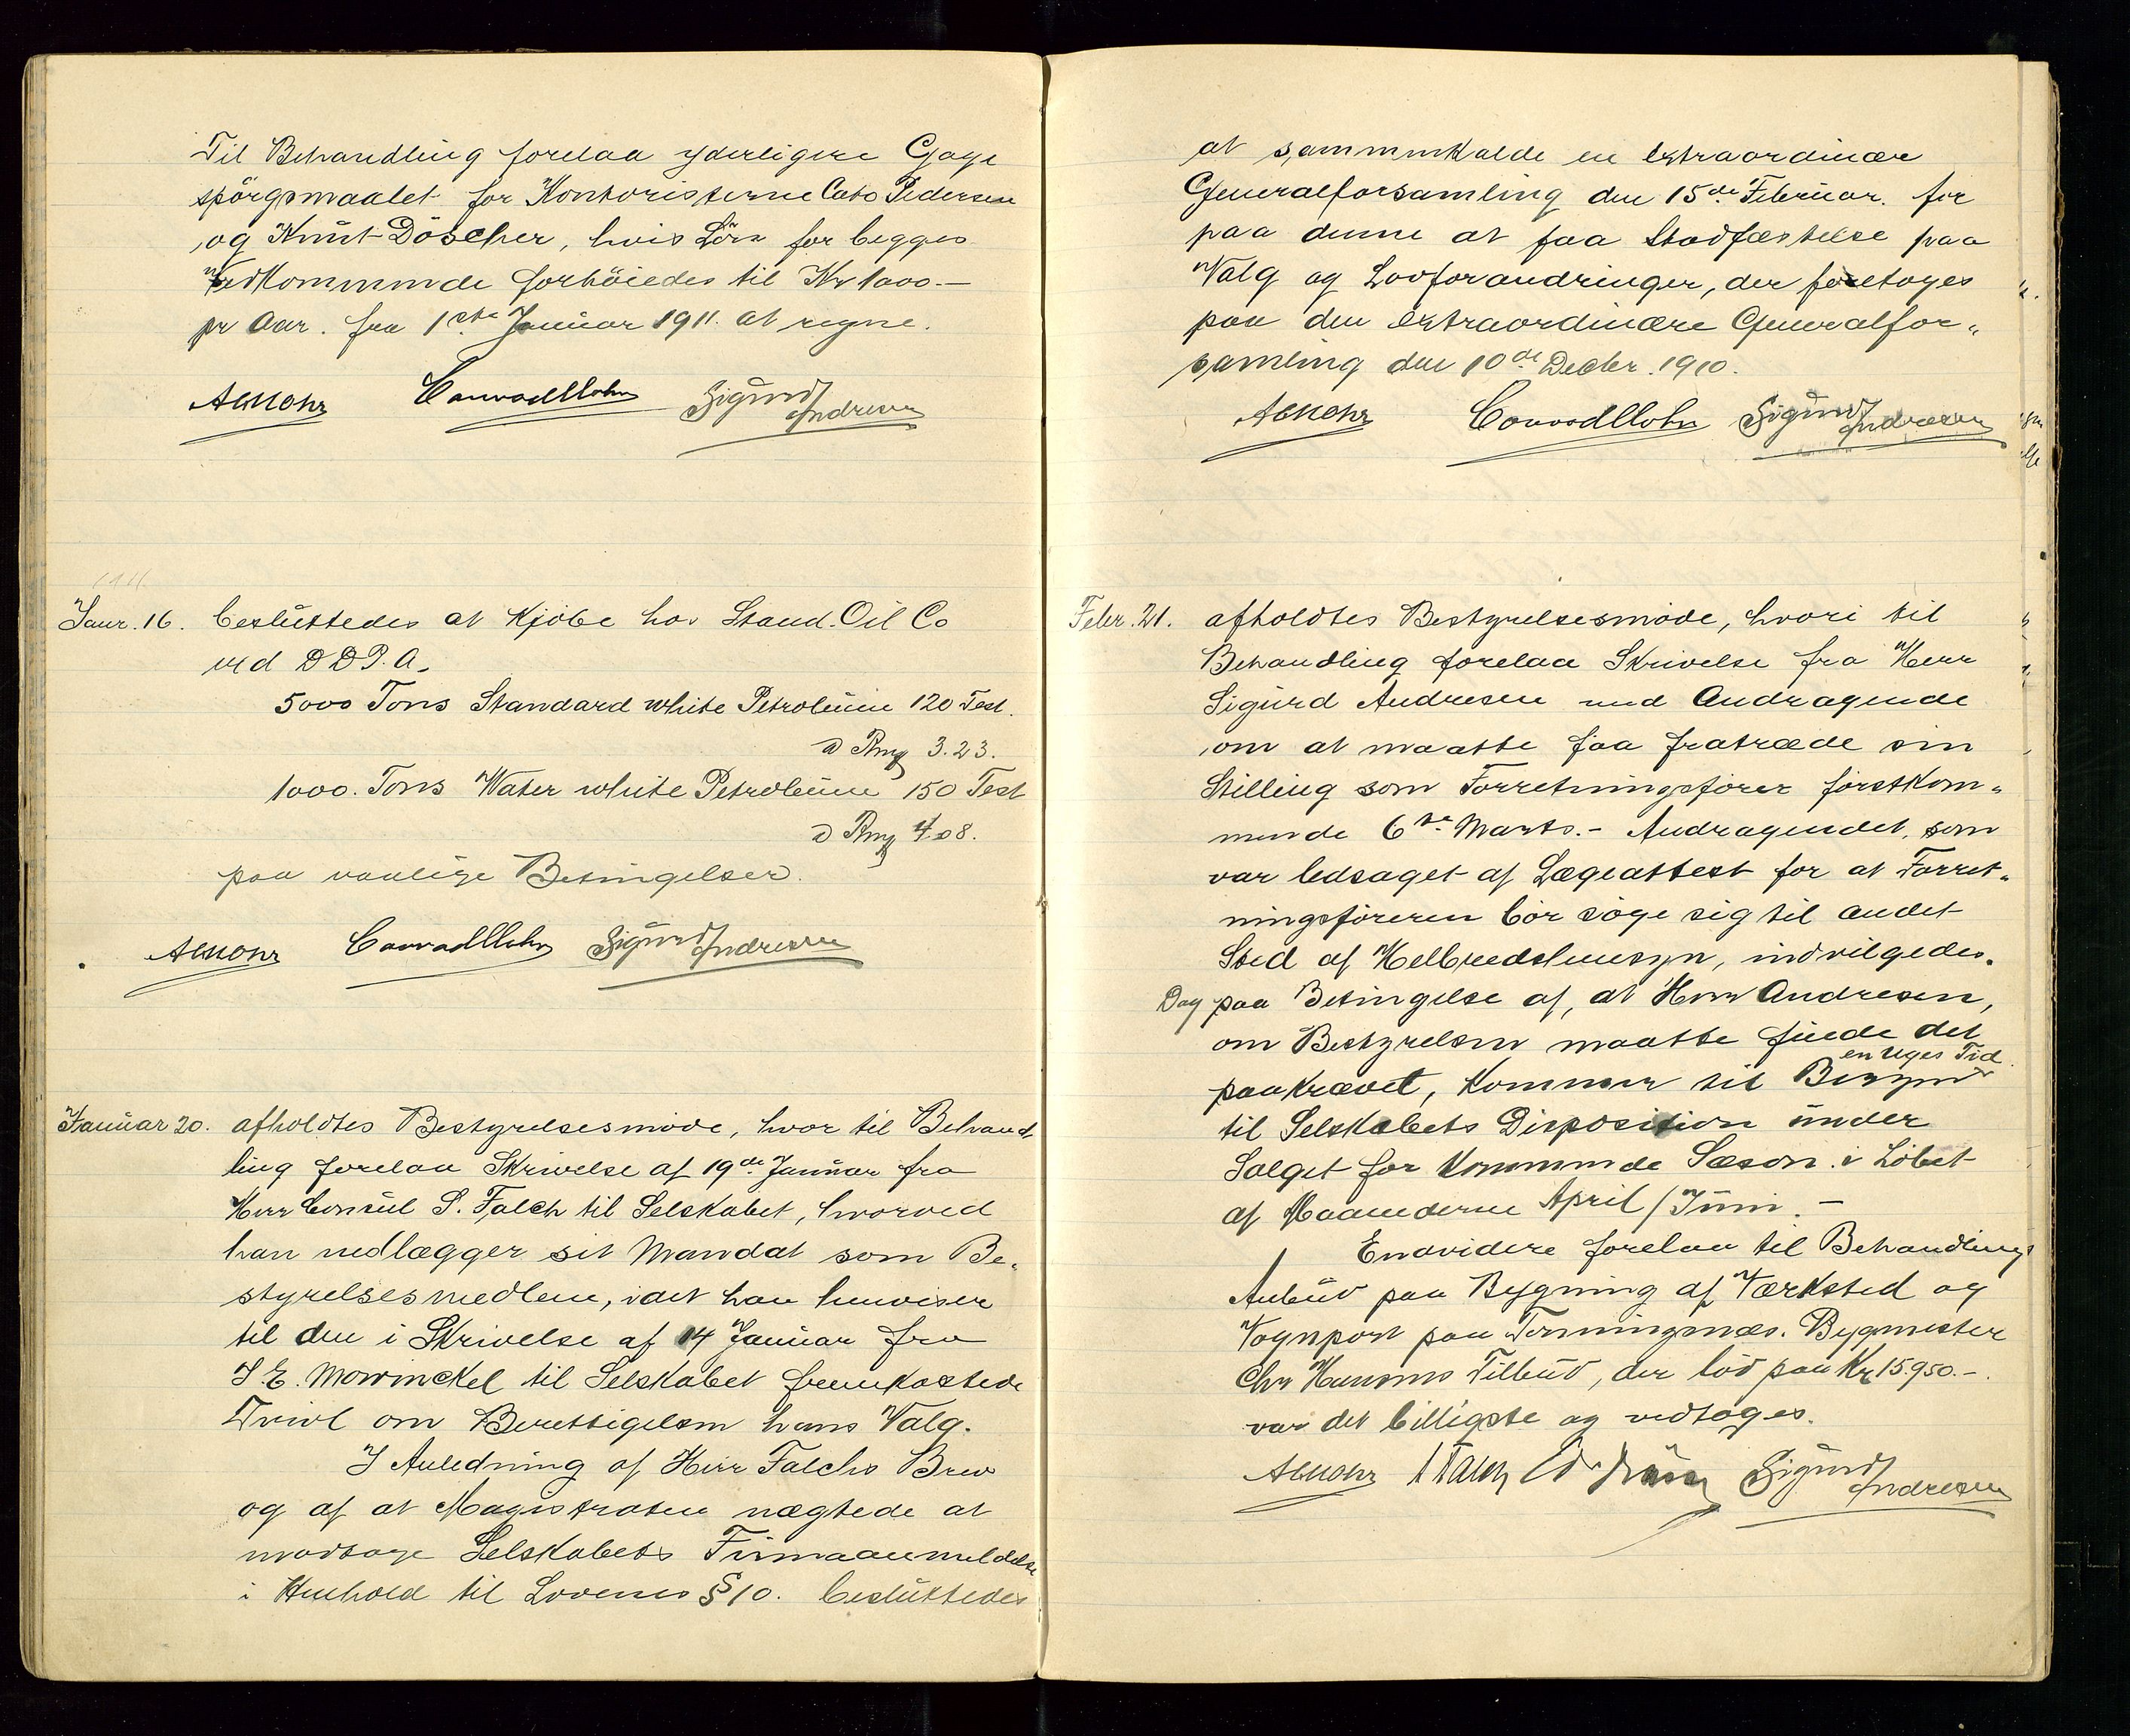 Til Behandling forelaa yderligere Gage
spörgsmaalet for Kontoristerne Cato Pedersen
og Knut Döscher, hvis Lön for begges
Vedkommende forhöiedes til Kr 1000.-
pr Aar. fra 1ste Januar 1911. at regne.
AEMohr Conrad Mohr Sigurd Andresen
1911.
Janr. 16. besluttedes at kjöbe hos Stand. Oil Co
ved D D P. A.
5000 Tons Standard white Petroleum 120 Test.
a Rmg 3.23.
1000. Tons Water white Petroleum 150 Test
a Rmg 4.08.
paa vanlige Betingelser.
AEMohr Conrad Mohr Sigurd Andresen
Januar 20. afholdtes Bestyrelsesmöde, hvor til Behand
ling forelaa Skrivelse af 19de Januar fra
Herr Consul S. Falch til Selskabet, hvorved
han nedlægger sit Mandat som Be-
styrelsesmedlem, idet han henviser
til den i Skrivelse af 14 Januar fra
J. E. Mowinckel til Selskabet fremkastede
Tvivl om Berettigelsen hans Valg.
I Anledning af Herr Falchs Brev
og af at Magistraten nægtede at
modtage Selskabets Firmaanmeldelse
i Henhold til Lovenes § 10. besluttedes
at sammenkalde en extraordinær
Generalforsamling den 15de Februar. for
paa denne at faa Stadfæstelse paa
Valg og Lovforandringer, der foretoges
paa den extraordinære Generalfor-
samling den 10de Decbr. 1910.
AEMohr Conrad Mohr Sigurd Andresen
Febr. 21. afholdtes Bestyrelsesmöde, hvori til
Behandling forelaa Skrivelse fra Herr
Sigurd Andresen med Andragende
om at maatte faa fratræde sin
Stilling som Forretningsförer förstkom-
mende 6te Marts.- Andragendet, som
var ledsaget af Lægeattest for at Forret-
ningsföreren bör söge sig til andet
Sted af Helbredshensyn, indvilgedes.
Dog paa Betingelse af, at Herr Andresen,
om Bestyrelsen maatte finde det
en Uges Tid
paakrævet, kommer til Bergen
til Selskabets Disposition under
Salget for kommende Sæson i Löbet
af Maanederne April/Juni. -
Endvidere forelaa til Behandling
Anbud paa Bygning af Værksted og
Vognport paa Terningsnæs. Bygmester
Chr Hansens Tilbud, der löd paa Kr 15.950.-.
var det billigste og vedtoges.
AEMohr S Falch Sigurd Andresen